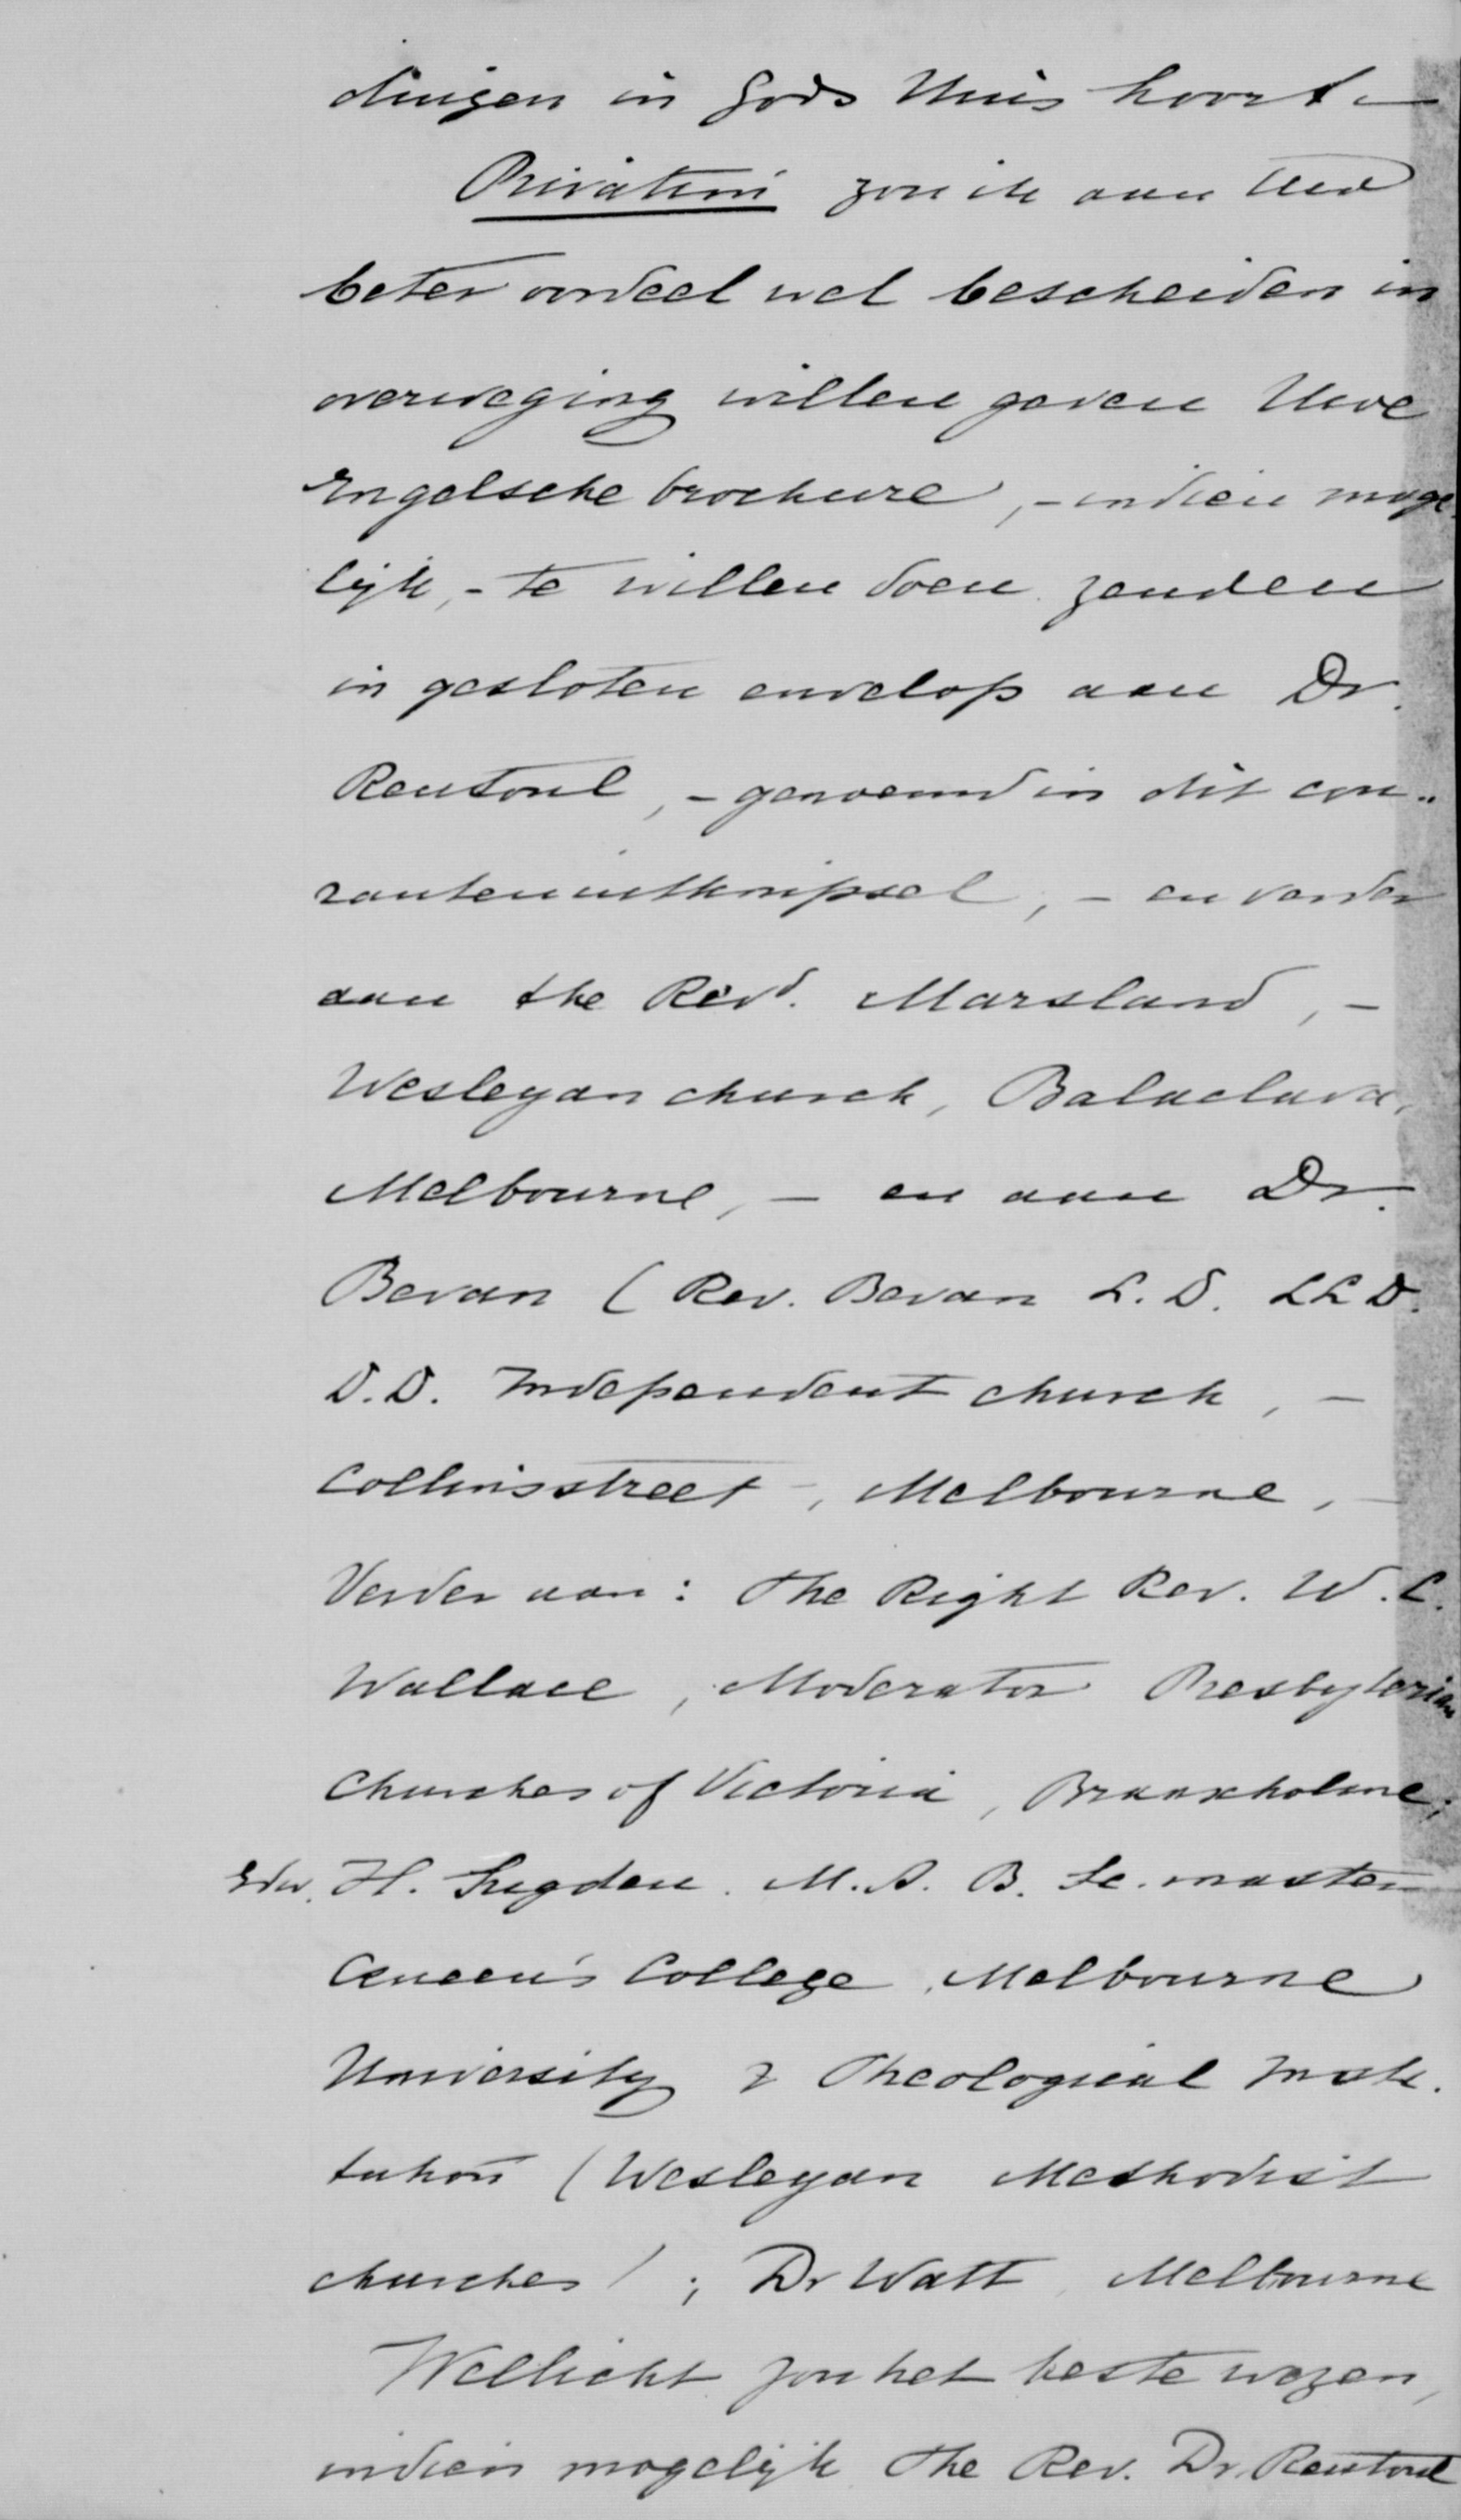 dingen in Gods Huis hoort. –
Privatim zou ik aan Ued
beter oordeel wel bescheiden in
overweging willen geven Uwe
Engelsche brochure, – indien moge-
lijk, – te willen doen zenden
in gesloten envelop aan Dr.
Rentoul, – genoemd in dit cou-
rantenuitknipsel, – en verder
aan the Revd. Marsland, –
Wesleyan church, Balaclava,
Melbourne, – en aan Dr.
Bevan (Rev. Bevan L.D. LLD.
D.D. Independent church, –
Collinsstreet, Melbourne, –
Verder aan: The Right Rev. W.C.
Wallace, Moderator Presbyterian
Churches of Victoria, Branxholme;
Edw. H. Sugden. M.A. B. Sc. master
Queen's College, Melbourne
University & Theological Insti-
tution (Wesleyan Methodist
churches); Dr Watt, Melbourne
Wellicht zou het beste wezen,
indien mogelijk The Rev. Dr. Rentoul